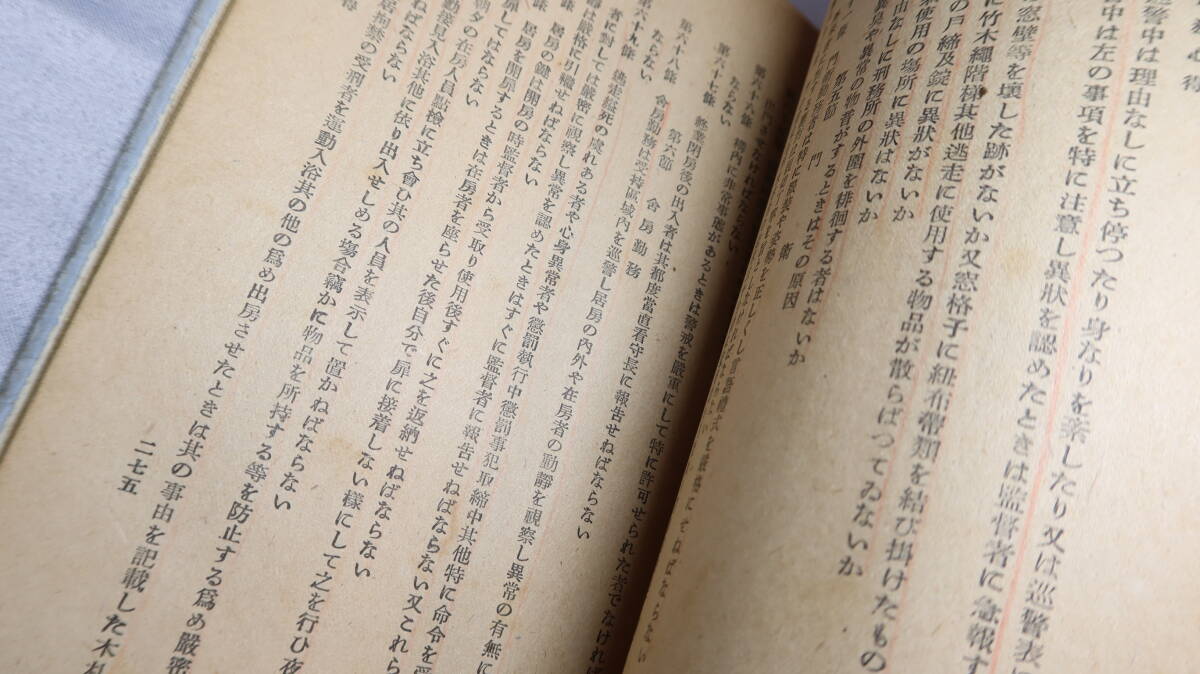 巡警中は理由なしに立ち停つたり身なりを素したり又は巡警表に
警中は左の事項を特に注意し異狀を認めたときは監督者に急報す
窓壁等を壊した跡がないか又窓格子に紐布帶類を結び掛けたもの
に竹木繩階梯其他逃走に使用する物品が散らばつてゐないか
の戸締及錠に異狀がないか
使用の場所に異狀はないか
由なしに刑務所の外圍を徘徊する者はないか
異臭や異常の物音がするときはその原因
第五節 門 衛
第六十六條 終業閉房後の出入者は其都度當直看守長に報告せねばならない
第六十七條 構内に非常事變があるときは警戒を嚴重にして特に許可せられた者でなければ
ならない
第六節 舍房勤務
第六十八條 舍房勤務は受持區域内を巡警し居房の内外や在房者の動靜を視察し異常の有無に
ならない
第六十九條 逃走縊死の虞れある者や心身異常者や懲罰執行中懲罰事犯取締中其他特に命令を受
者に對しては嚴密に視察し異常を認めたときはすぐに監督者に報告せねばならない又これら
は嚴格に引繼せねばならない
條 居房の鍵は開房の時監督者から受取り使用後すぐに之を返納せねばならない
條 居房を開扉するときは在房者を座らせた後自分で扉に接着しない樣にして之を行ひ夜
扉してはならない
朝夕の在房人員點檢に立ち會ひ其の人員を表示して置かねばならない
動接見入浴其他に依り出入せしめる場合竊かに物品を所持する等を防止する爲め嚴密
ねばならない
居拘禁の受刑者を運動入浴其の他の爲め出房させたときは其の事由を記載した木札
得
二七五